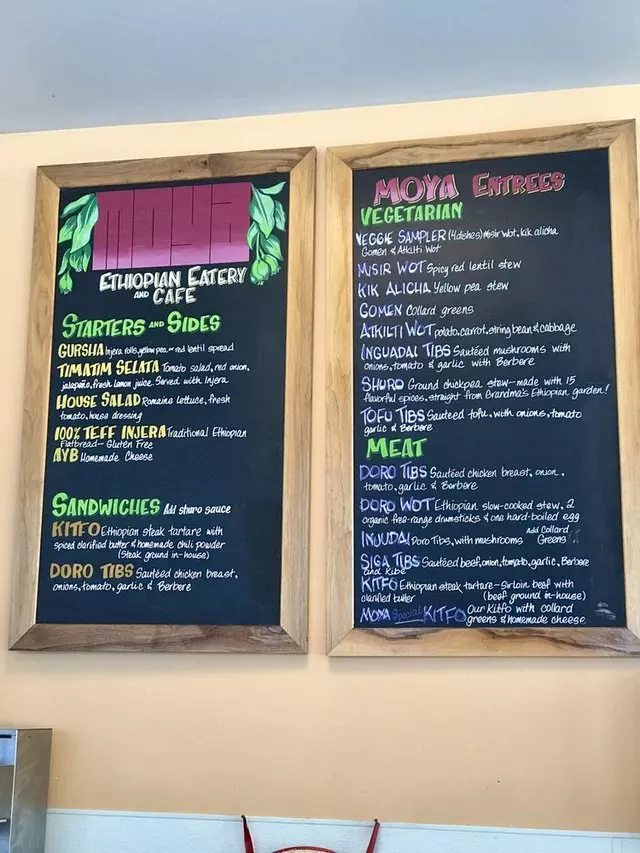 moya
ETHIOPIAN EATERY
AND CAFE
STARTERS AND SIDES
GURSHA Injera rolls, yellow pea or red lentil spread
TIMATIM SELATA Tomato salad, red onion,
jalapeño, fresh lemon juice. Served with Injera
HOUSE SALAD Romaine lettuce, fresh
tomato, house dressing
100% TEFF INJERA Traditional Ethiopian
Flatbread - Gluten Free
AYB Homemade Cheese
SANDWICHES Add shuro sauce
KITFO Ethiopian steak tartare with
spiced clarified butter & homemade chili powder
(steak ground in-house)
DORO TIBS Sautéed chicken breast,
onions, tomato, garlic & Berbere
MOYA ENTREES
VEGETARIAN
VEGGIE SAMPLER (4 dishes) misir wot, kik alicha
Gomen & Atkilti Wot
MISIR WOT Spicy red lentil stew
KIK ALICHA Yellow pea stew
GOMEN Collard greens
ATKILTI WOT potato, carrot, string bean & cabbage
INGUADAI TIBS Sautéed mushrooms with
onions, tomato & garlic with Berbere
SHURO Ground chickpea stew - made with 15
flavorful spices, straight from Grandma's Ethiopian garden!
TOFU TIBS Sauteed tofu, with onions, tomato
garlic & Berbere
MEAT
DORO TIBS Sautéed chicken breast, onion,
tomato, garlic & Berbere
DORO WOT Ethiopian slow-cooked stew, 2
organic free-range drumsticks & one hard-boiled egg
INGUDAI Doro Tibs, with mushrooms Add Collard
Greens
SIGA TIBS Sautéed beef, onion, tomato, garlic, Berbere
and Kibe
KITFO Ethiopian steak tartare - Sirloin beef with
clarified butter (beef ground in-house)
MOYA Special KITFO Our Kitfo with collard
greens & homemade cheese